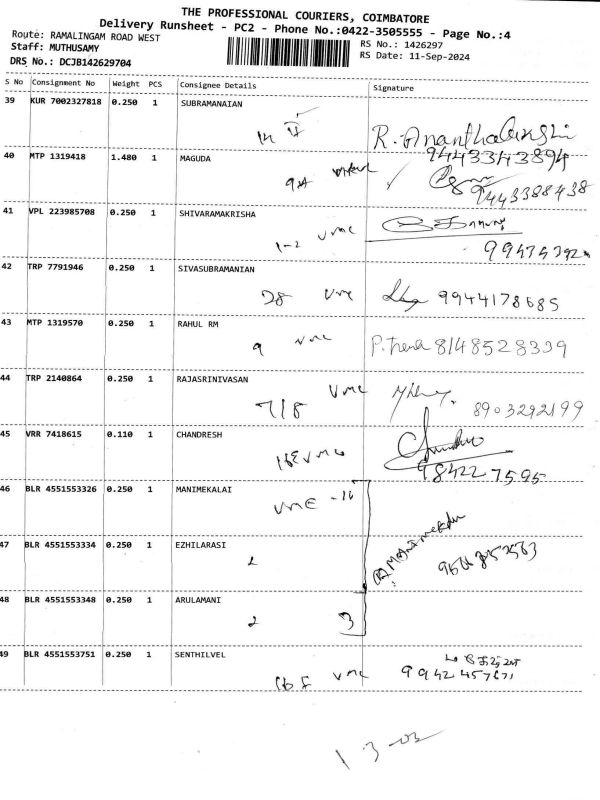 THE PROFESSIONAL COURIERS, COIMBATORE
Delivery Runsheet - PC2 - Phone No.:0422-3505555 - Page No.:4
Route: RAMALINGAM ROAD WEST
RS No.: 1426297
Staff: MUTHUSAMY
RS Date: 11-Sep-2024
DRS No.: DCJB142629704
S No Consignment No Weight PCS Consignee Details Signature
39 KUR 7002327818 0.250 1 SUBRAMANAIAN
9443343894
40 MTP 1319418 1.480 1 MAGUDA
9443388438
41 VPL 223985708 0.250 1 SHIVARAMAKRISHA
1-2 vmc
42 TRP 7791946 0.250 1 SIVASUBRAMANIAN
28 vmc 9944178685
43 MTP 1319570 0.250 1 RAHUL RM
9 vmc 8148528339
44 TRP 2140864 0.250 1 RAJASRINIVASAN
718 vmc
8903292199
45 VRR 7418615 0.110 1 CHANDRESH
vmc
98422 7595
46 BLR 4551553326 0.250 1 MANIMEKALAI
vmc -16
47 BLR 4551553334 0.250 1 EZHILARASI
2
48 BLR 4551553348 0.250 1 ARULAMANI
2 3
49 BLR 4551553751 0.250 1 SENTHILVEL
vmc